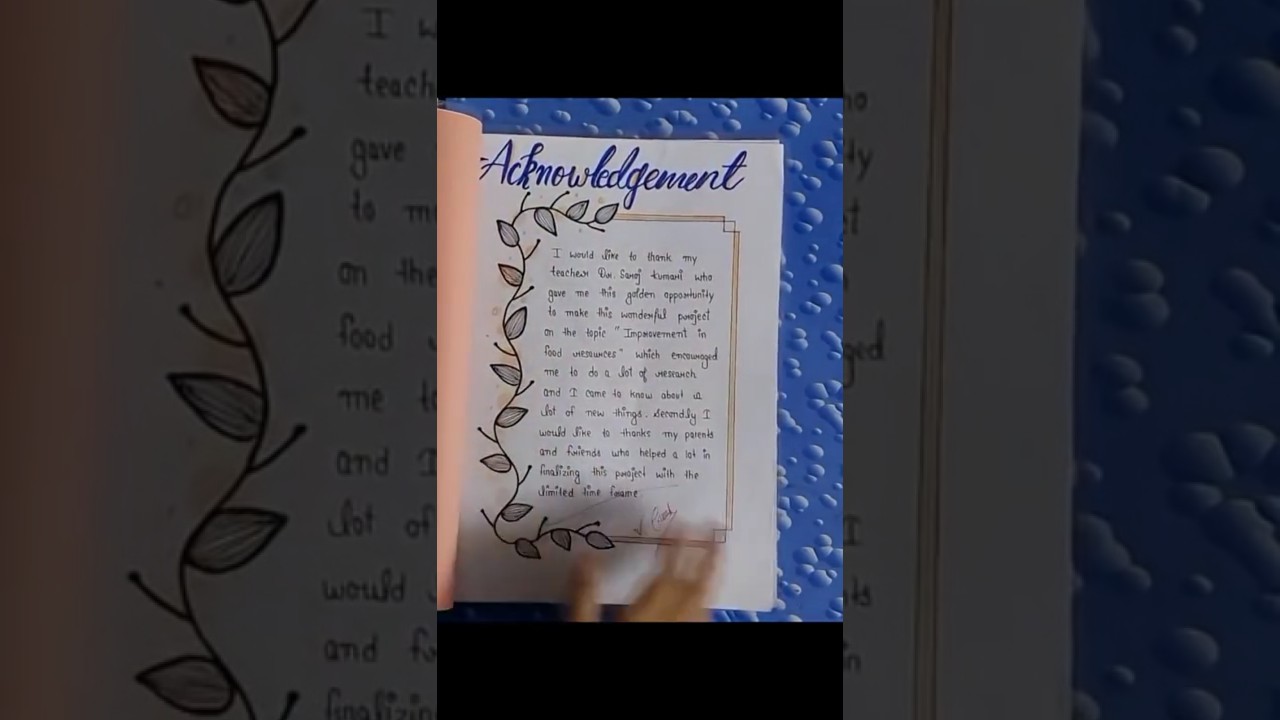 Acknowledgement
I would like to thank my
teacher Dr. Saroj kumari who
gave me this golden opportunity
to make this wonderful project
on the topic "Improvement in
food resources" which encouraged
me to do a lot of research
and I came to know about a
lot of new things. Secondly I
would like to thanks my parents
and friends who helped a lot in
finalizing this project with the
limited time frame